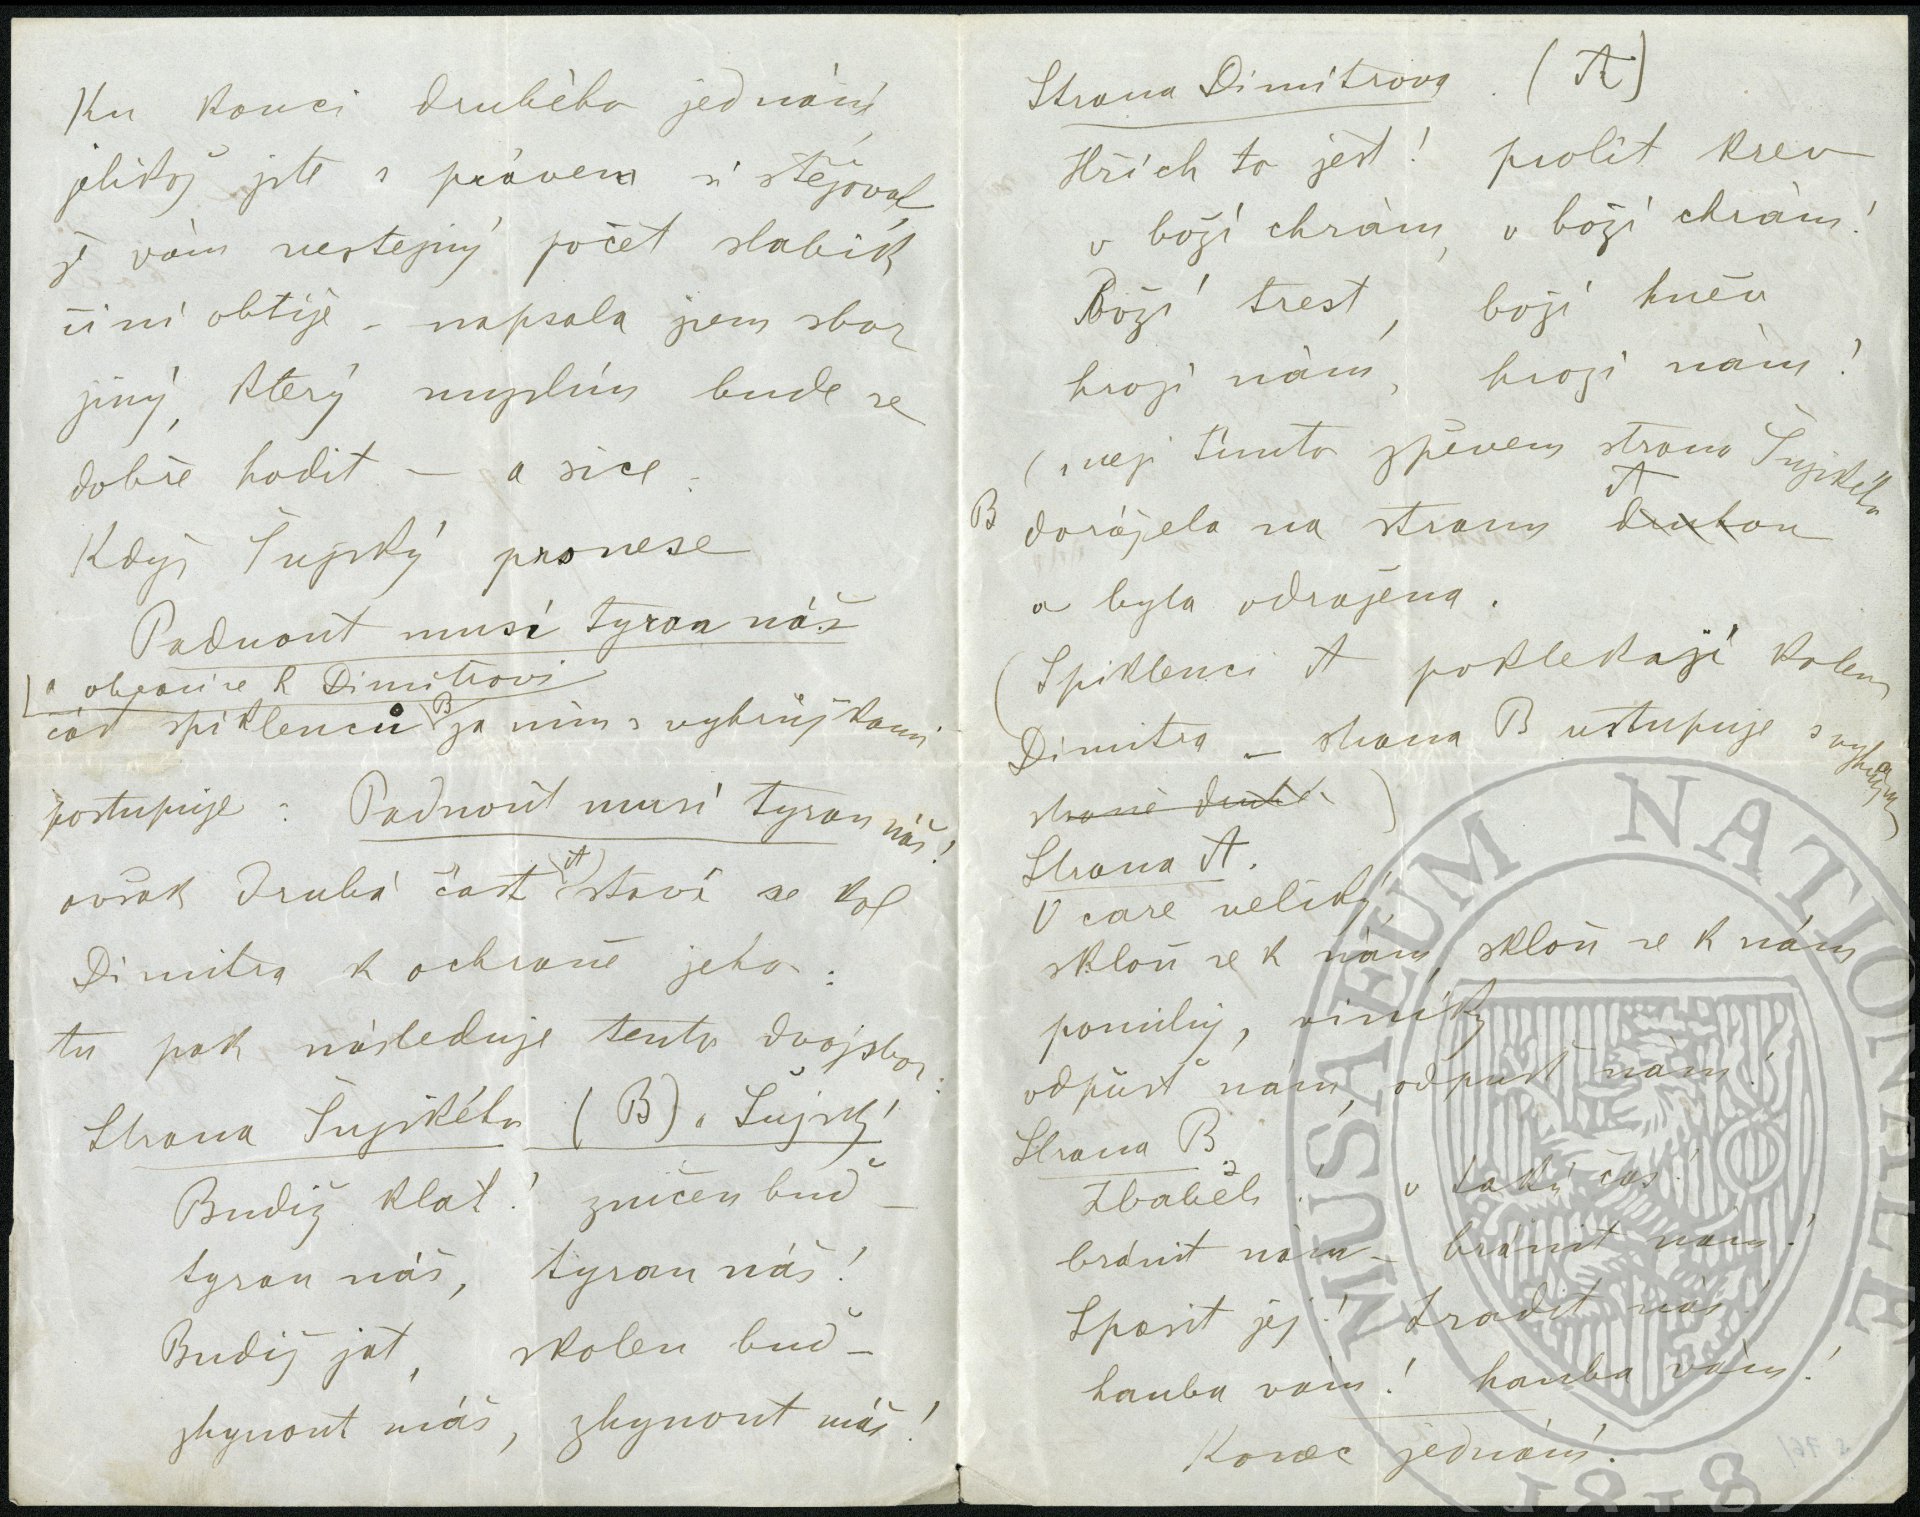 Ku konci druhého jednání
jelikož jste s právem si stěžoval
že vám nestejný počet slabik
činí obtíže – napsala jsem sbor
jiný, který myslím bude se
dobře hodit – a sice:
Když Šujský pronese
Padnout musí tyran náš
a obrací se k Dimitrovi
část spiklenců (B) za ním s výkřiky
postupuje: Padnout musí tyran náš!
avšak druhá část (A) staví se kol
Dimitra k ochraně jeho:
tu pak následuje tento dvojsbor:
Strana Šujského (B) a Šujský
Budiž klat! zničen buď –
tyran náš, tyran náš!
Budiž jat, skolen buď –
zhynout máš, zhynout máš!
Strana Dimitrova. (A)
Hřích to jest! prolít krev
v boží chrám, v boží chrám!
Boží trest, boží hněv
hrozí nám, hrozí nám!
(mezi tímto zpěvem strana Šujského
B dorážela na stranu druhou A
a byla odražena.
(Spiklenci A poklekají kolem
Dimitra – strana B ustupuje s
straně druhé)
Strana A.
O care veliký
skloň se k nám, skloň se k nám
pomiluj, viníky
odpusť nám, odpusť nám!
Strana B.
Zbabělí! v taký čas!
bránit nám – bránit nám!
Spasit jej! Zradit nás!
hanba vám! hanba vám!
Konec jednání.
MUSAEUM NATIONALE
1818